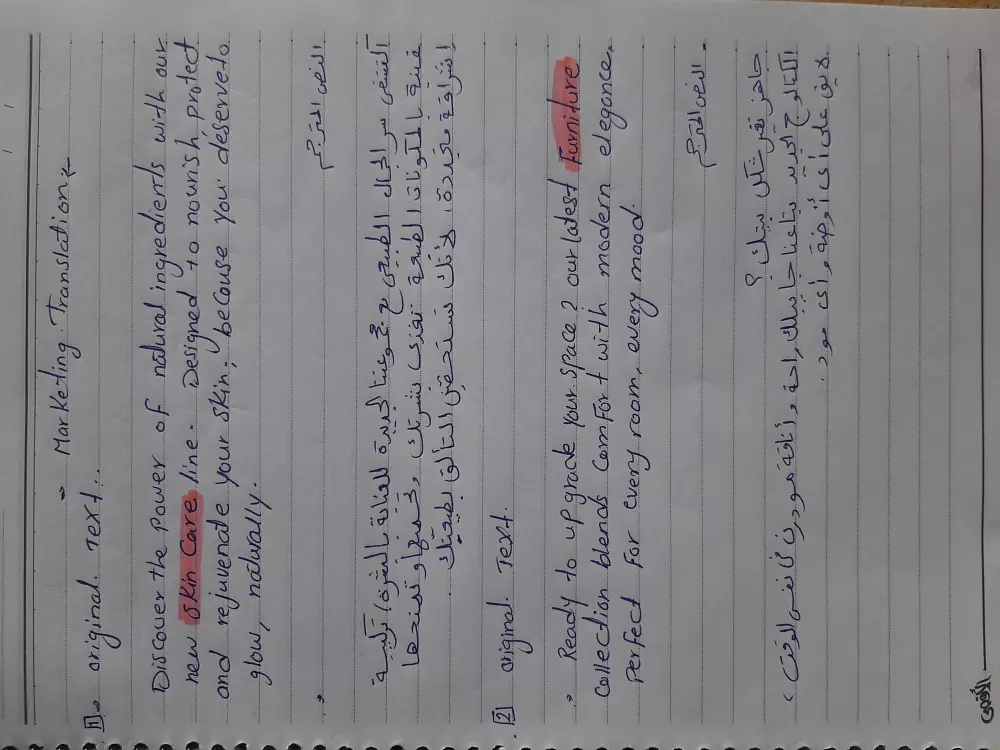 → Marketing Translation ←
[1]→ original Text..
Discover the power of natural ingredients with our
new skin Care line. Designed to nourish protect
and rejuvenate your skin, because you deserve to
glow, naturally.
النص المترجم
اكتشفى سر الجمال الطبيعى مع مجموعتنا الجديدة للعناية بالبشرة، تركيبة
غنية بالمكونات الطبيعية تغذى بشرتك، وتحميها وتمنحها
إشراقة جديدة، لأنك تستحقين التألق بطبيعتك.
[2] original Text.
Ready to upgrade your space? our latest Furniture
Collection blends Comfort with modern elegance.
Perfect For every room, every mood.
النص المترجم
جاهز تغير شكل بيتك؟
الكتالوج الجديد بتاعنا جايبلك راحة وأناقة مودرن فى نفس الوقت،
لايق على أى أوضة وأى مود.
الأقصى